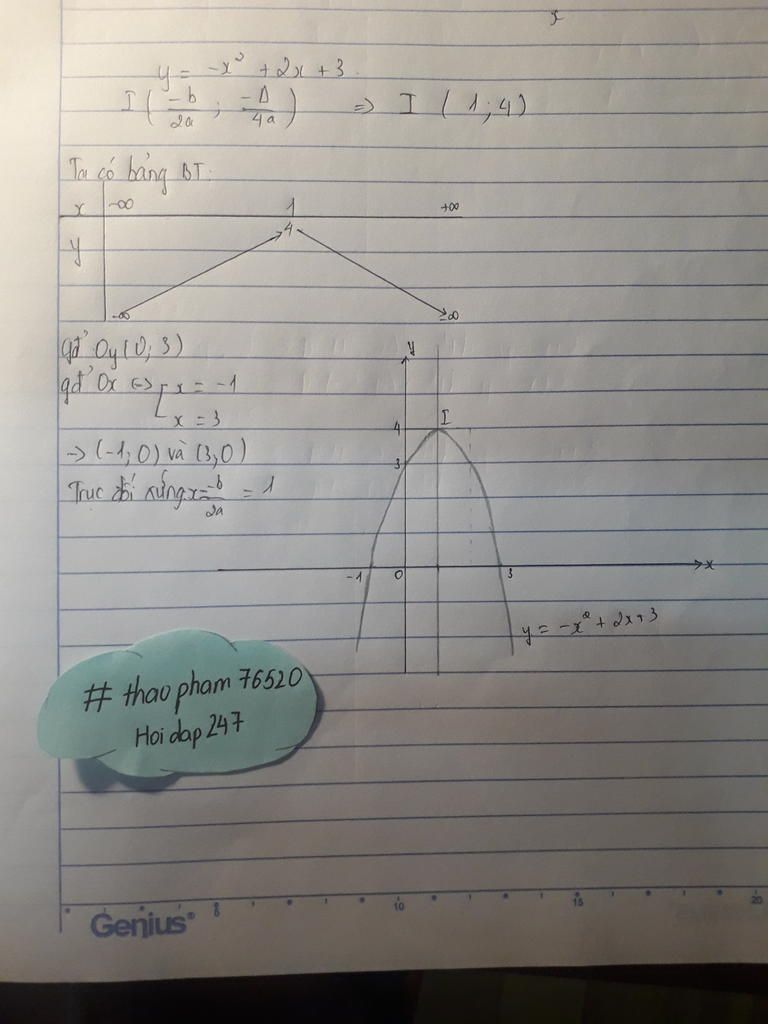 x
y = -x² + 2x + 3
I ( -b/2a ; -Δ/4a ) => I ( 1 ; 4 )
Ta có bảng BT:
x -∞ 1 +∞
y 4
-∞ -∞
gđ' Oy (0; 3)
gđ' Ox <=> [ x = -1
x = 3
-> (-1; 0) và (3, 0)
Trục đối xứng: x = -b/2a = 1
y
I
4
3
-1 0 3 x
y = -x² + 2x + 3
# thaopham 76520
Hoi dap 247
5 10 15 20
Genius®